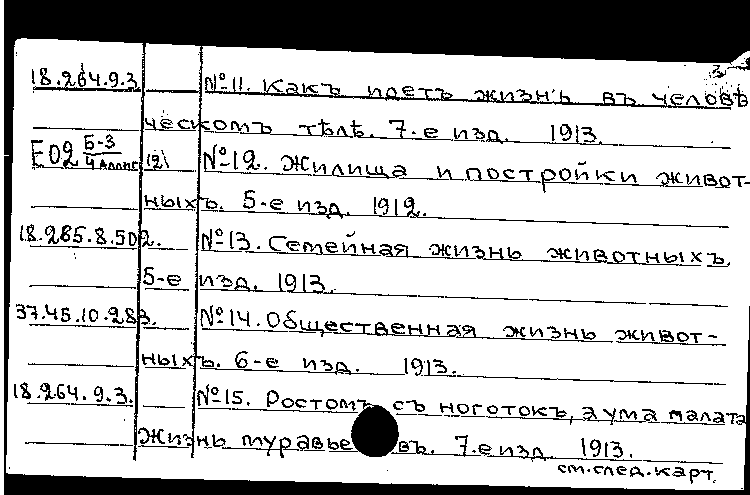 3
18.264.9.3 №11. Какъ идетъ жизнь въ человѣ
ческомъ тѣлѣ. 7-е изд. 1913.
Е02 Б-3/4 аллиг. (2) №12. Жилища и постройки живот-
ныхъ. 5-е изд. 1912.
18.285.8.502. №13. Семейная жизнь животныхъ.
5-е изд. 1913.
37.45.10.283. №14. Общественная жизнь живот-
ныхъ. 6-е изд. 1913.
18.264.9.3. №15. Ростомъ съ ноготокъ, а ума палата
Жизнь муравье въ. 7-е изд. 1913.
см. след. карт.